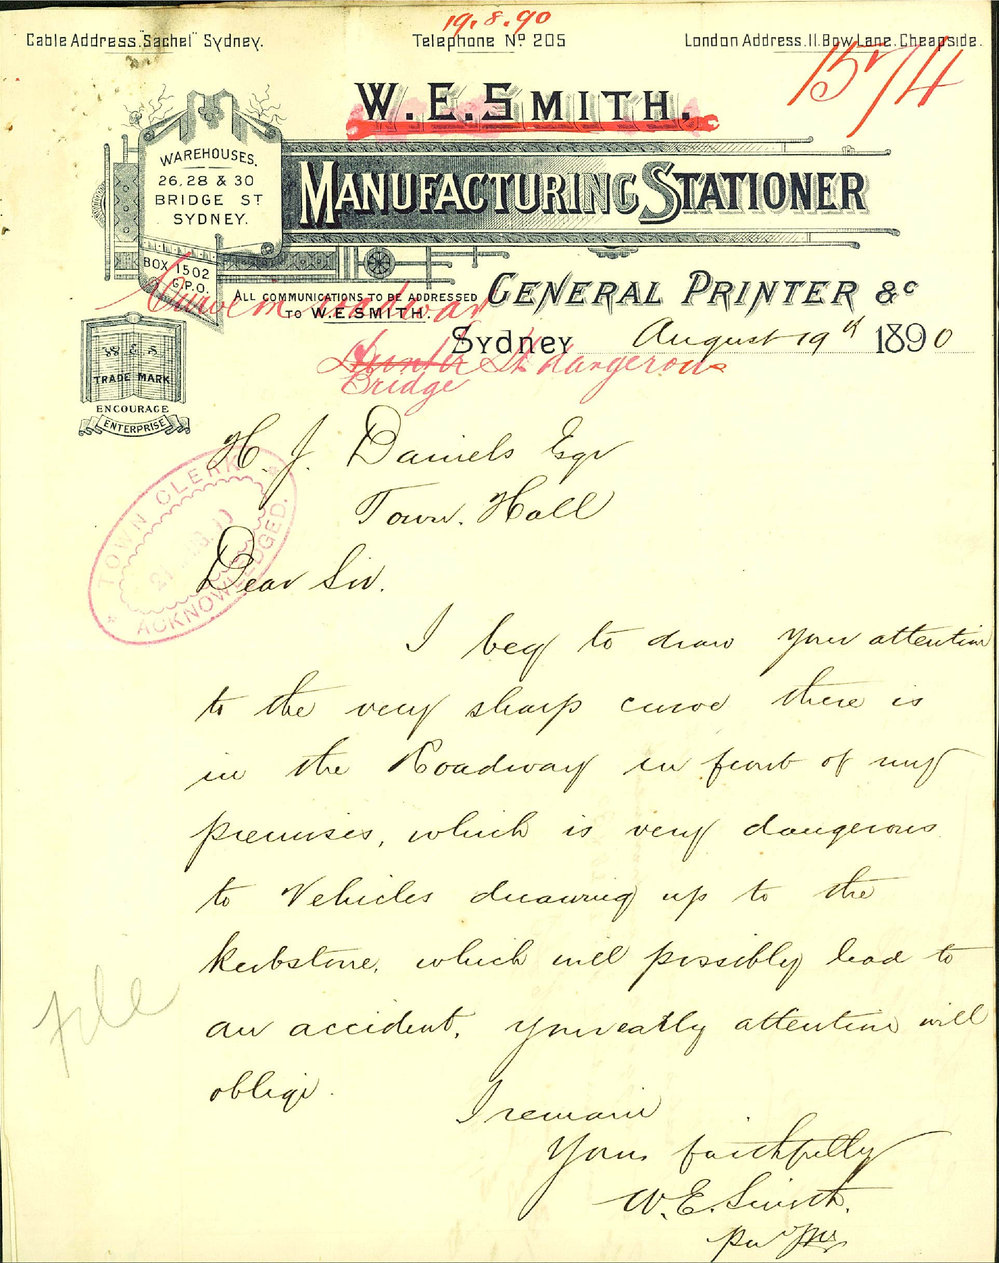 19.8.90
Cable Address. "Sachel" Sydney.
Telephone No 205
London Address. 11. Bow Lane. Cheapside.
W. E. SMITH.
MANUFACTURING STATIONER
WAREHOUSES.
26, 28 & 30
BRIDGE ST
SYDNEY.
BOX 1502
G.P.O.
ALL COMMUNICATIONS TO BE ADDRESSED
TO W.E. SMITH.
GENERAL PRINTER &c
Curve in roadway
Hunter St dangerous
Bridge
Sydney August 19th 1890
W & S
TRADE MARK
ENCOURAGE
ENTERPRISE
H. J. Daniels Esqr
Town. Hall
TOWN CLERK
ACKNOWLEDGED.
Dear Sir.
I beg to draw your attention
to the very sharp curve there is
in the Roadway in front of my
premises, which is very dangerous
to Vehicles drawing up to the
kerbstone, which will possibly lead to
an accident. Your early attention will
oblige.
File
I remain
Yours faithfully
W. E. Smith.